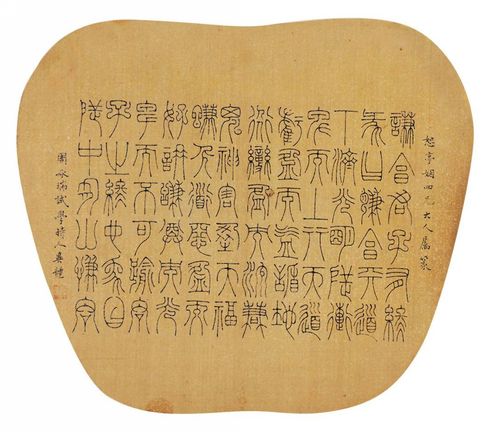 恕亭姻四兄大人屬篆
謙亨君子有終
彖曰謙亨天道
下濟光明地道
卑而上行天道
虧盈而益謙地
道變盈而流謙
鬼神害盈而福
謙人道惡盈而
好謙謙尊而光
卑而不可踰君
子之終也象曰
地中有山謙